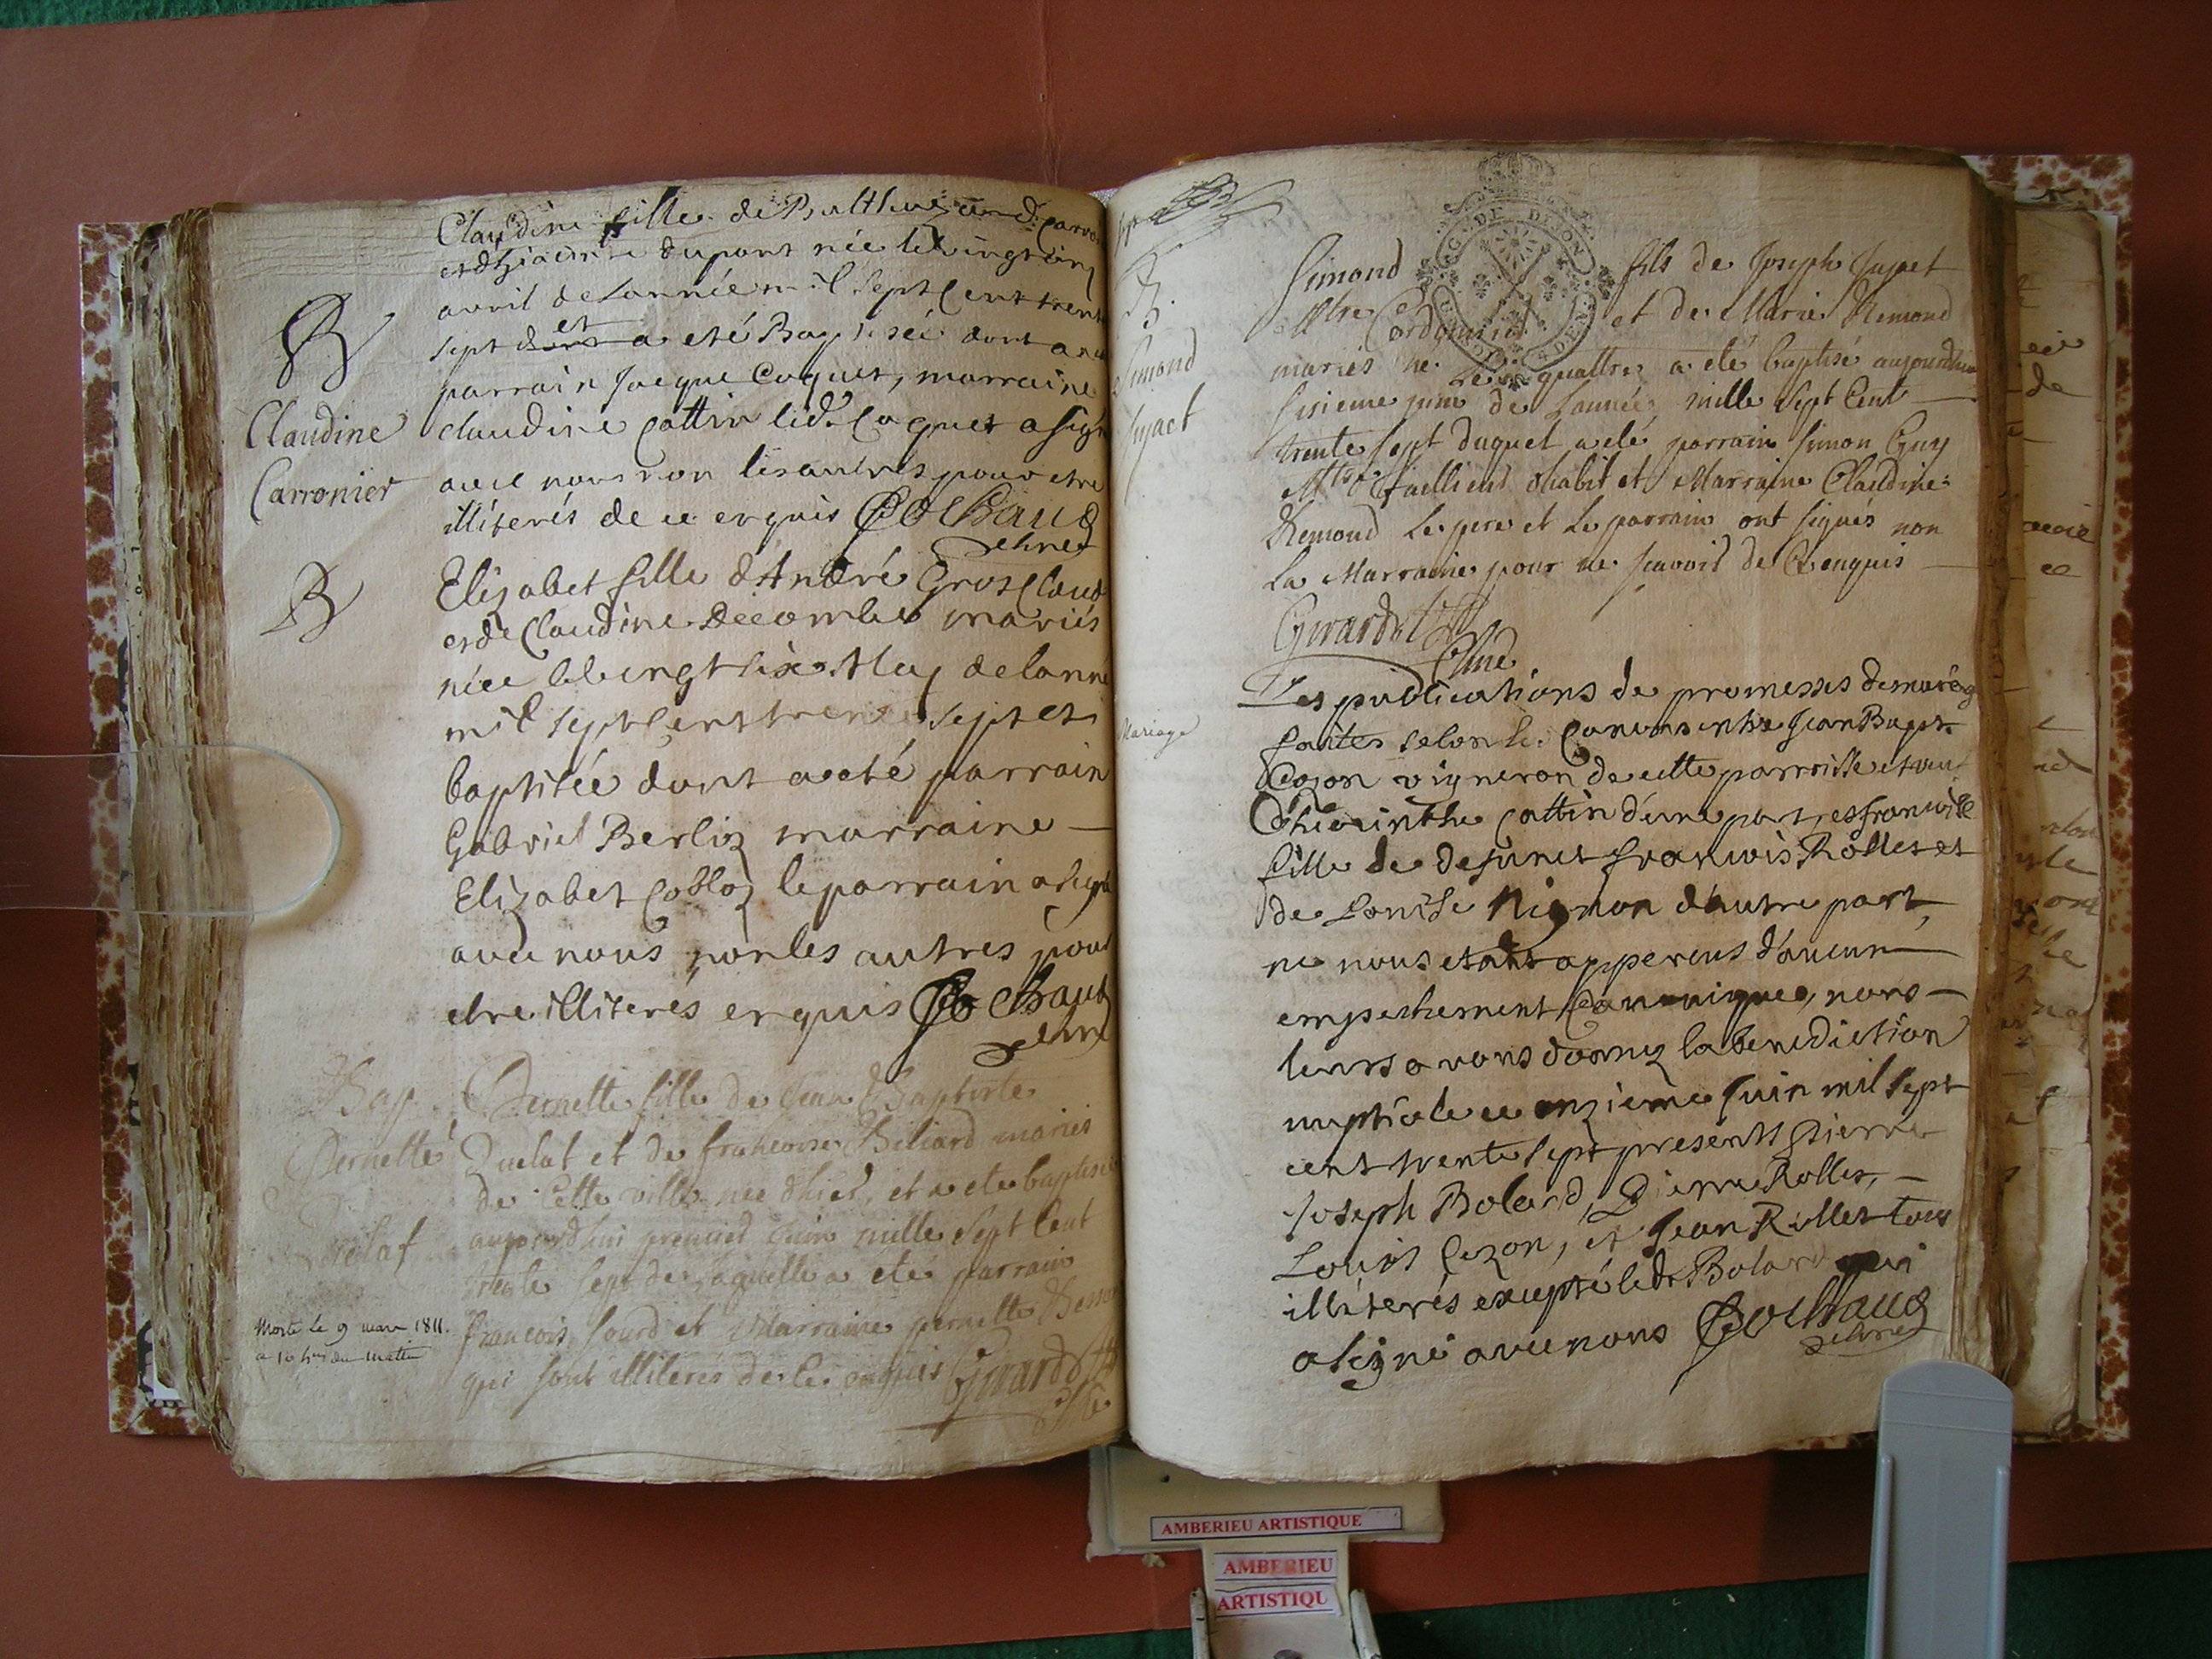 Claudine fille de Balthesard Carro
et d'hiacinte dupont née le vingt cinq
avril de Lannée mil sept cent trente
sept et a eté Baptisée dont a eté
parrain Jacque Coquet, marraine
claudine Cattin led. Coquet a signé
avec nous non les autres pour etre
illiterés de ce enquis Cochaud
B
Claudine
Carronier
Elizabet fille d'André Grosclaud
et de Claudine Decombes mariés
née le vingt six May de lanné
mil sept cent trente sept et
baptisée dont a eté parrain
Gabriel Berlioz marraine
Elizabet le parrain a signé
avec nous non les autres pour
etre illiterés enquis Cochaud
B
Pernette fille de Jean Baptiste
et de francoise Biliard mariés
de Cette ville née d'hier, et a eté baptisée
aujourdhui premier Juin mille sept Cent
trente sept de laquelle a eté parrain
francois Jourd et Marraine pernette
qui sont illiterés de Ce enquis Girard
Bap
Pernette
Morte le 9 mars 1811.
a 10 h du matin
B.
Simond
Jujact
GG. DE DIJON
Simond fils de Joseph Jujact
Mtre Cordonnier et de Marie Remond
mariés né Le quattre a eté baptisé aujourdhuy
sisieme juin de Lannée mille sept Cent
trente sept duquel a eté parrain Simon Guy
Mtre dhabit et Marraine Claudine
Remond Le pere et Le parrain ont signés non
La Marraine pour ne scavoir de Ce enquis
Girard
Mariage
Les publications de promesses de mariag
faites selon les Canons entre Jean Bapt.
Cozon vigneron de cette parroisse et veuf
d'hiacinthe Cattin d'une part, et francoise
fille de defunct francois Rollet et
de Louise Mignon d'autre part,
ne nous etant apperceus d'aucun
empechement Canonique, nous
leurs avons donnez la benediction
nuptiale ce onzieme Juin mil sept
cent trente sept presents Pierre
Joseph Bolard, Pierre Rollet,
Louis Cozon, et Jean Rollet tous
illiterés excepté led. Bolard qui
a signé avec nous Cochaud
AMBERIEU ARTISTIQUE
AMBERIEU
ARTISTIQU